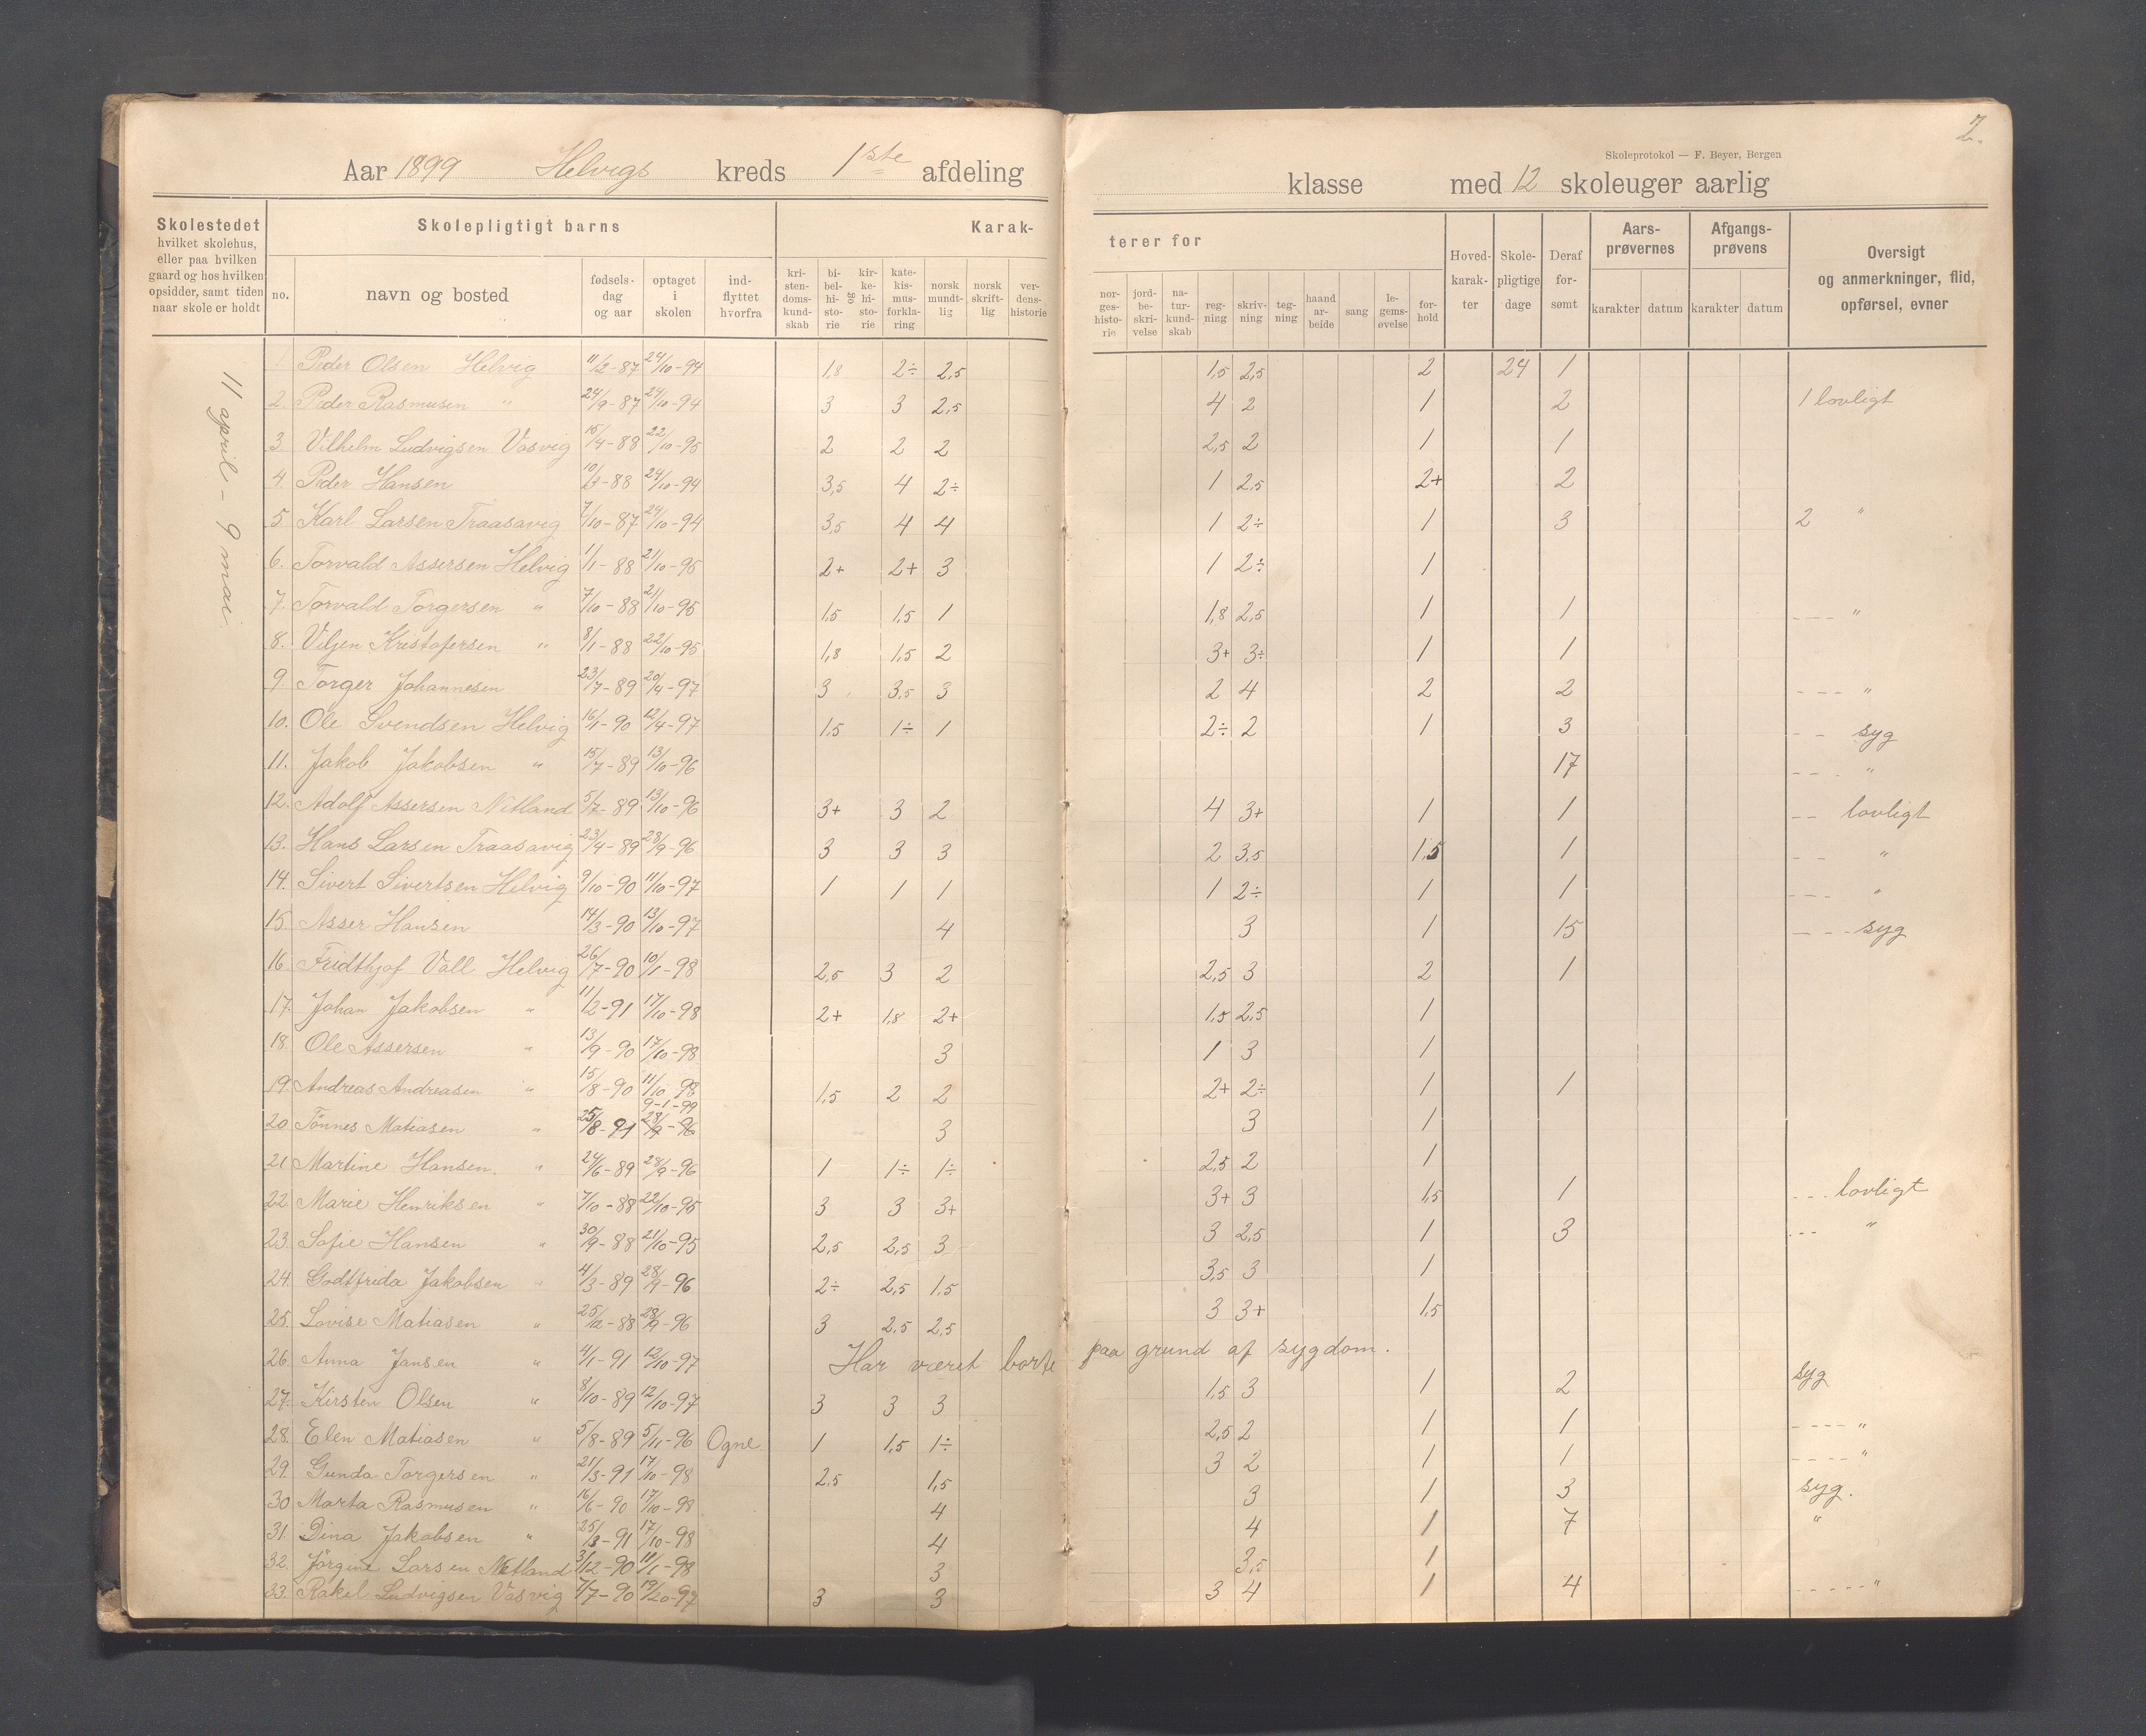 2.
Skoleprotokol — F. Beyer, Bergen
Aar 1899 Helvigs kreds 1ste afdeling klasse med 12 skoleuger aarlig
Skolestedet hvilket skolehus, eller paa hvilken gaard og hos hvilken opsidder, samt tiden naar skole er holdt
Skolepligtigt barns
Karakterer for
no. navn og bosted fødselsdag og aar optaget i skolen indflyttet hvorfra
kristendomskundskab bibelhistorie og kirkehistorie katekismusforklaring norsk mundtlig norsk skriftlig verdenshistorie
norgeshistorie jordbeskrivelse naturkundskab regning skrivning tegning haandarbeide sang legemsøvelse forhold
Hovedkarakter Skolepligtige dage Deraf forsømt
Aarsprøvernes karakter datum Afgangsprøvens karakter datum
Oversigt og anmerkninger, flid, opførsel, evner
11 april - 9 mai.
1. Peder Olsen Helvig 11/2-87 24/10-94 1,8 2÷ 2,5 1,5 2,5 2 24 1
2. Peder Rasmusen " 24/9-87 24/10-94 3 3 2,5 4 2 1 2 1 lovligt
3 Vilhelm Ludvigsen Vasvig 15/4-88 22/10-95 2 2 2 2,5 2 1 1
4. Peder Hansen 10/3-88 24/10-94 3,5 4 2÷ 1 2,5 2+ 2
5. Karl Larsen Traasavig 7/10-87 24/10-94 3,5 4 4 1 2÷ 1 3 2 "
6. Torvald Assersen Helvig 1/1-88 21/10-95 2+ 2+ 3 1 2÷ 1
7. Torvald Torgersen " 7/10-88 21/10-95 1,5 1,5 1 1,8 2,5 1 1 --- "
8. Viljen Kristofersen " 8/1-88 22/10-95 1,8 1,5 2 3+ 3÷ 1 1
9. Torger Johannesen 23/7-89 20/4-97 3 3,5 3 2 4 2 2 --- "
10. Ole Svendsen Helvig 16/1-90 12/4-97 1,5 1÷ 1 2÷ 2 1 3 -- syg
11. Jakob Jakobsen " 15/7-89 13/10-96 17 --- "
12. Adolf Assersen Netland 5/7-89 13/10-96 3+ 3 2 4 3+ 1 1 -- lovligt
13. Hans Larsen Traasavig 23/4-89 28/9-96 3 3 3 2 3,5 1,5 1 -- "
14. Sivert Sivertsen Helvig 9/10-90 11/10-97 1 1 1 1 2÷ 1 1 --- "
15. Asser Hansen 14/3-90 13/10-97 4 3 1 15 --- syg
16. Fridthjof Vall Helvig 26/7-90 10/1-98 2,5 3 2 2,5 3 2 1
17. Johan Jakobsen " 11/2-91 17/10-98 2+ 1,8 2+ 1,5 2,5 1
18. Ole Assersen " 13/9-90 17/10-98 3 1 3 1
19. Andreas Andreasen " 15/8-90 11/10-98 1,5 2 2 2+ 2÷ 1 1
9-1-99
20 Tönnes Matiasen " 25/8-91 28/9-96 3 3 1
21 Martine Hansen. " 24/6-89 28/9-96 1 1÷ 1÷ 2,5 2 1
22 Marie Henriksen " 7/10-88 22/10-95 3 3 3+ 3+ 3 1,5 1 --- lovligt
23. Sofie Hansen " 30/9-88 21/10-95 2,5 2,5 3 3 2,5 1 3 --- "
24. Godtfrida Jakobsen " 4/3-89 28/9-96 2÷ 2,5 1,5 3,5 3 1
25. Lovise Matiasen " 25/12-88 28/9-96 3 2,5 2,5 3 3+ 1,5
26. Anna Jansen " 4/1-91 12/10-97 Har været borte paa grund af sygdom.
27. Kirsten Olsen " 8/10-89 12/10-97 3 3 3 1,5 3 1 2 syg
28. Elen Matiasen " 5/8-89 5/11-96 Ogne 1 1,5 1÷ 2,5 2 1 1 ---- "
29. Gunda Torgersen " 21/3-91 17/10-98 2,5 1,5 3 2 1 1 ---- "
30 Marta Rasmusen " 16/6-90 17/10-98 4 3 1 3 syg.
31. Dina Jakobsen " 25/3-91 17/10-98 4 4 1 7 "
32. Jörgine Larsen Netland 3/12-90 11/1-98 3 3,5 1
33. Rakel Ludvigsen Vasvig 7/7-90 19/20-97 3 3 3 4 1 4 ----- "